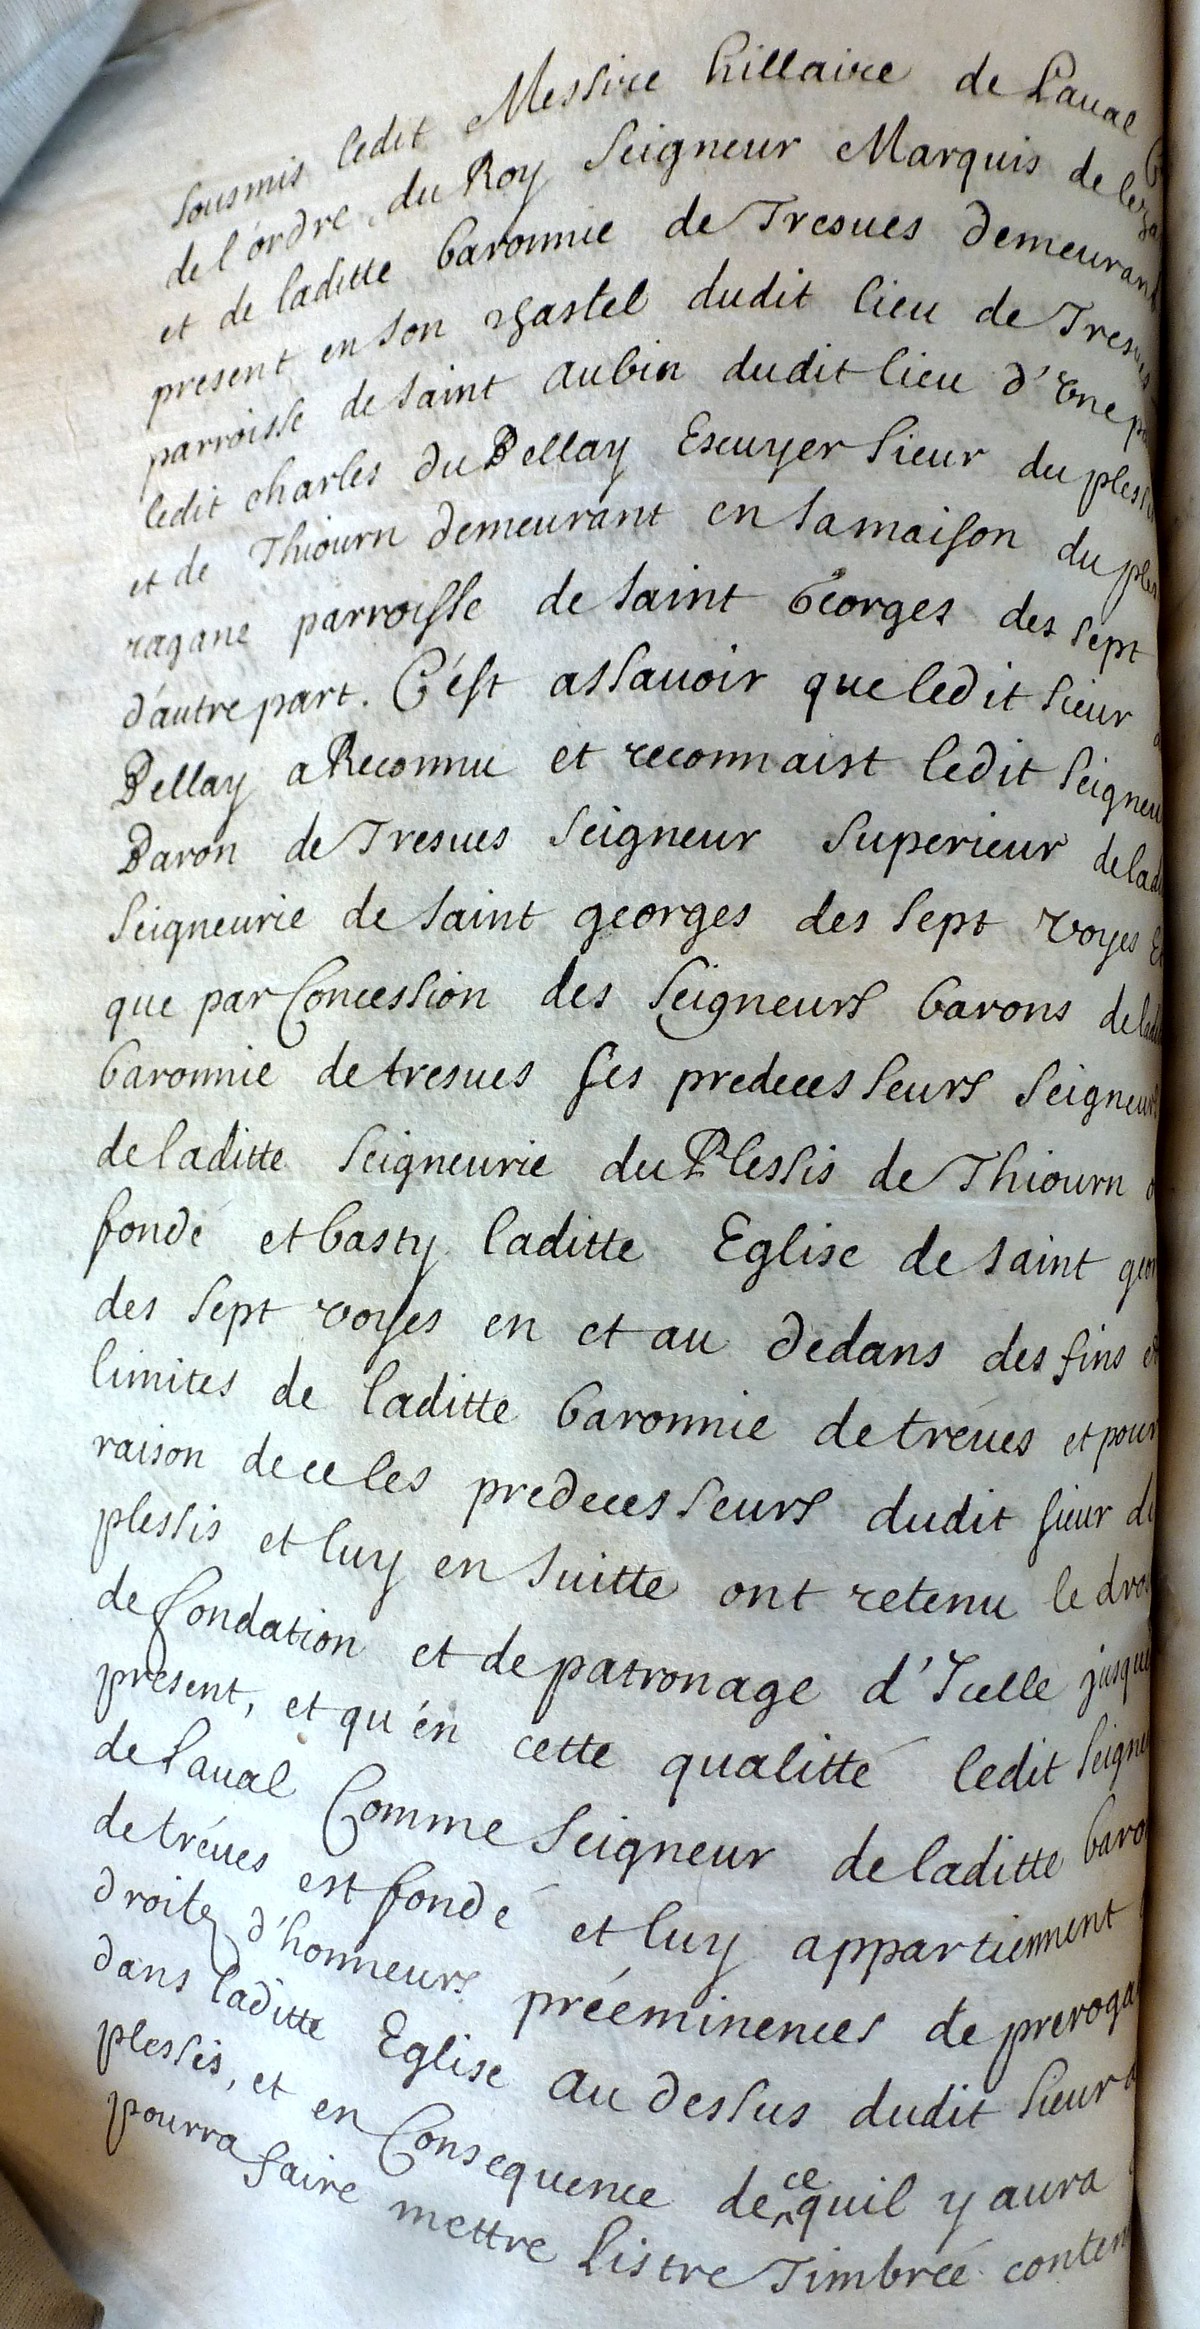 sousmis ledit Messire hillaire de Laual
de l'ordre du Roy Seigneur Marquis de
et de laditte baronnie de Tresues demeurant
present en son chastel dudit lieu de Tresues
parroisse de saint aubin dudit lieu d'vne
ledit charles du Bellay Escuyer sieur du
et de Thiourn demeurant en sa maison du
ragane parroisse de saint Georges des sept
d'autre part. C'ést assauoir que ledit sieur
Bellay a Reconnu et reconnaist ledit seigneur
Baron de Tresues seigneur superieur de
seigneurie de saint georges des sept voyes
que par Concession des seigneurs barons de
baronnie de tresues ses predecesseurs seigneurs
de laditte seigneurie du Plessis de Thiourn
fondé et basty laditte Eglise de saint
des sept voyes en et au dedans des fins et
limites de laditte baronnie de tréues et pour
raison de ce les predecesseurs dudit sieur du
plessis et luy en suitte ont retenu le
de fondation et de patronage d'Icelle
present, et qu'én cette qualitté ledit
de Laual Comme seigneur de laditte
de tréues est fondé et luy appartiennent
droits d'honneurs prééminences de
dans laditte Eglise au dessus dudit sieur
plessis, et en Consequence de ce quil y aura
pourra faire mettre listre Timbrée